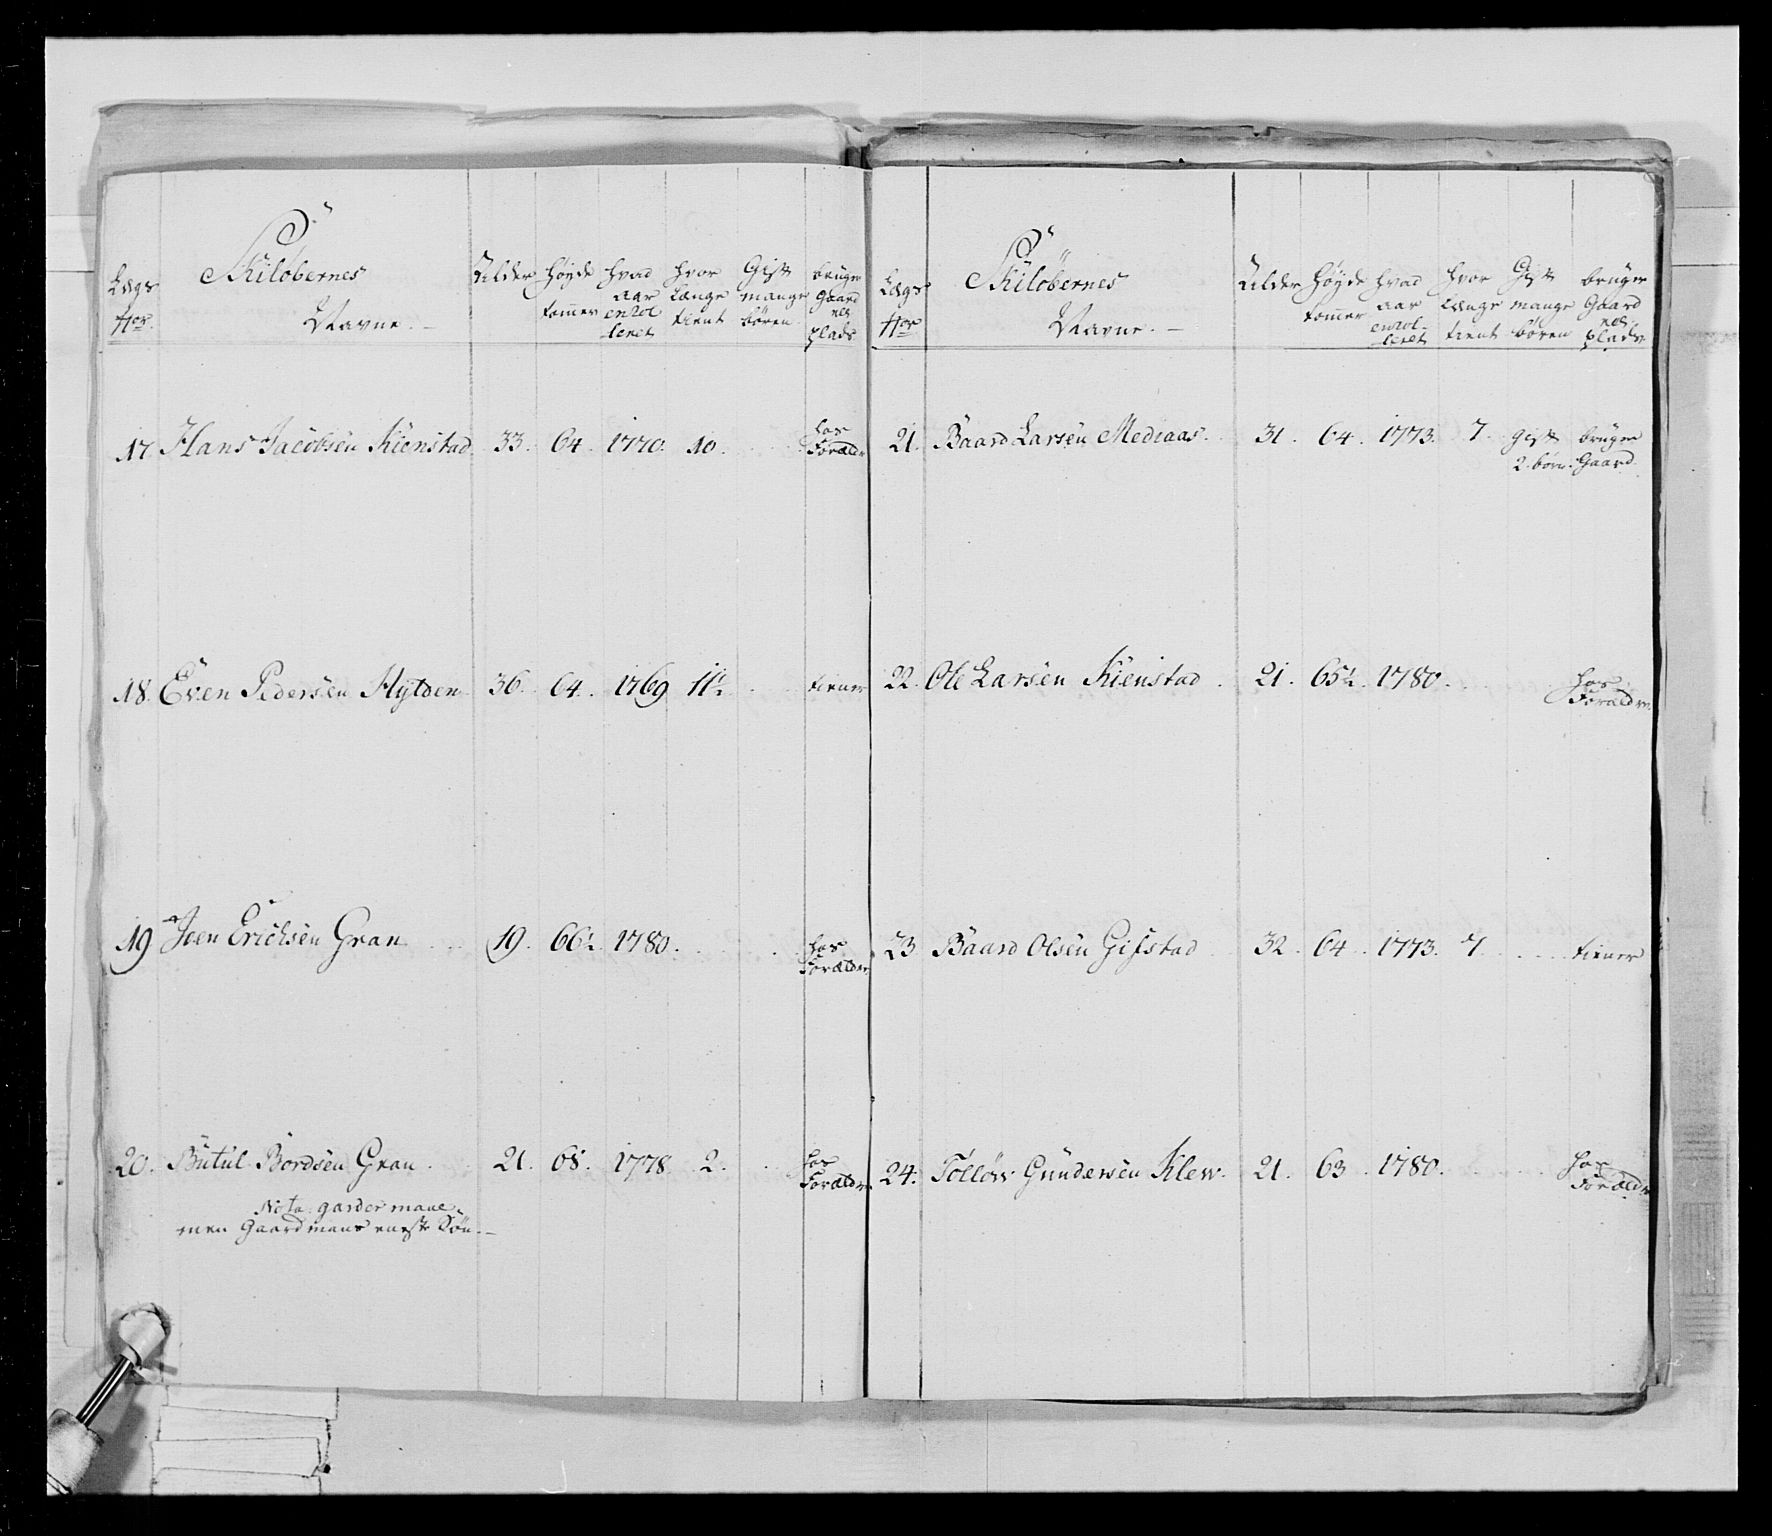 Lægs No.
Skilöbernes Navne.
Allder
Høyde tomer
hvad aar enrolleret
hvor Længe tient
Gift mange bören
bruger Gaard eller plads
17. Hans Jacobsen Kienstad 33. 64. 1770. 10. hos Forældr
18. Even Pedersen Hytden 36. 64. 1769 11½. tiener
19 Joen Erichsen Gran 19. 66½. 1780. hos Forældre
20. Butul Bordsen Gran. 21. 65. 1778. 2. hos Forældre
Nota: garder maal.
men Gaardmans eneste Søn.
Lægs No.
Skilöbernes Navne.
Allder
Høyde tomer
hvad aar enrolleret
hvor Længe tient
Gift mange bören
bruger Gaard eller plads
21. Baard Larsen Mediaas. 31. 64. 1773. 7. Gift 2. börn. bruger Gaard.
22. Ole Larsen Kienstad. 21. 65½. 1780. hos Forældre.
23 Baard Olsen Gifstad 32. 64. 1773. 7. tiener
24. Tolløv Gundersen Klev. 21. 63. 1780. hos Forældre